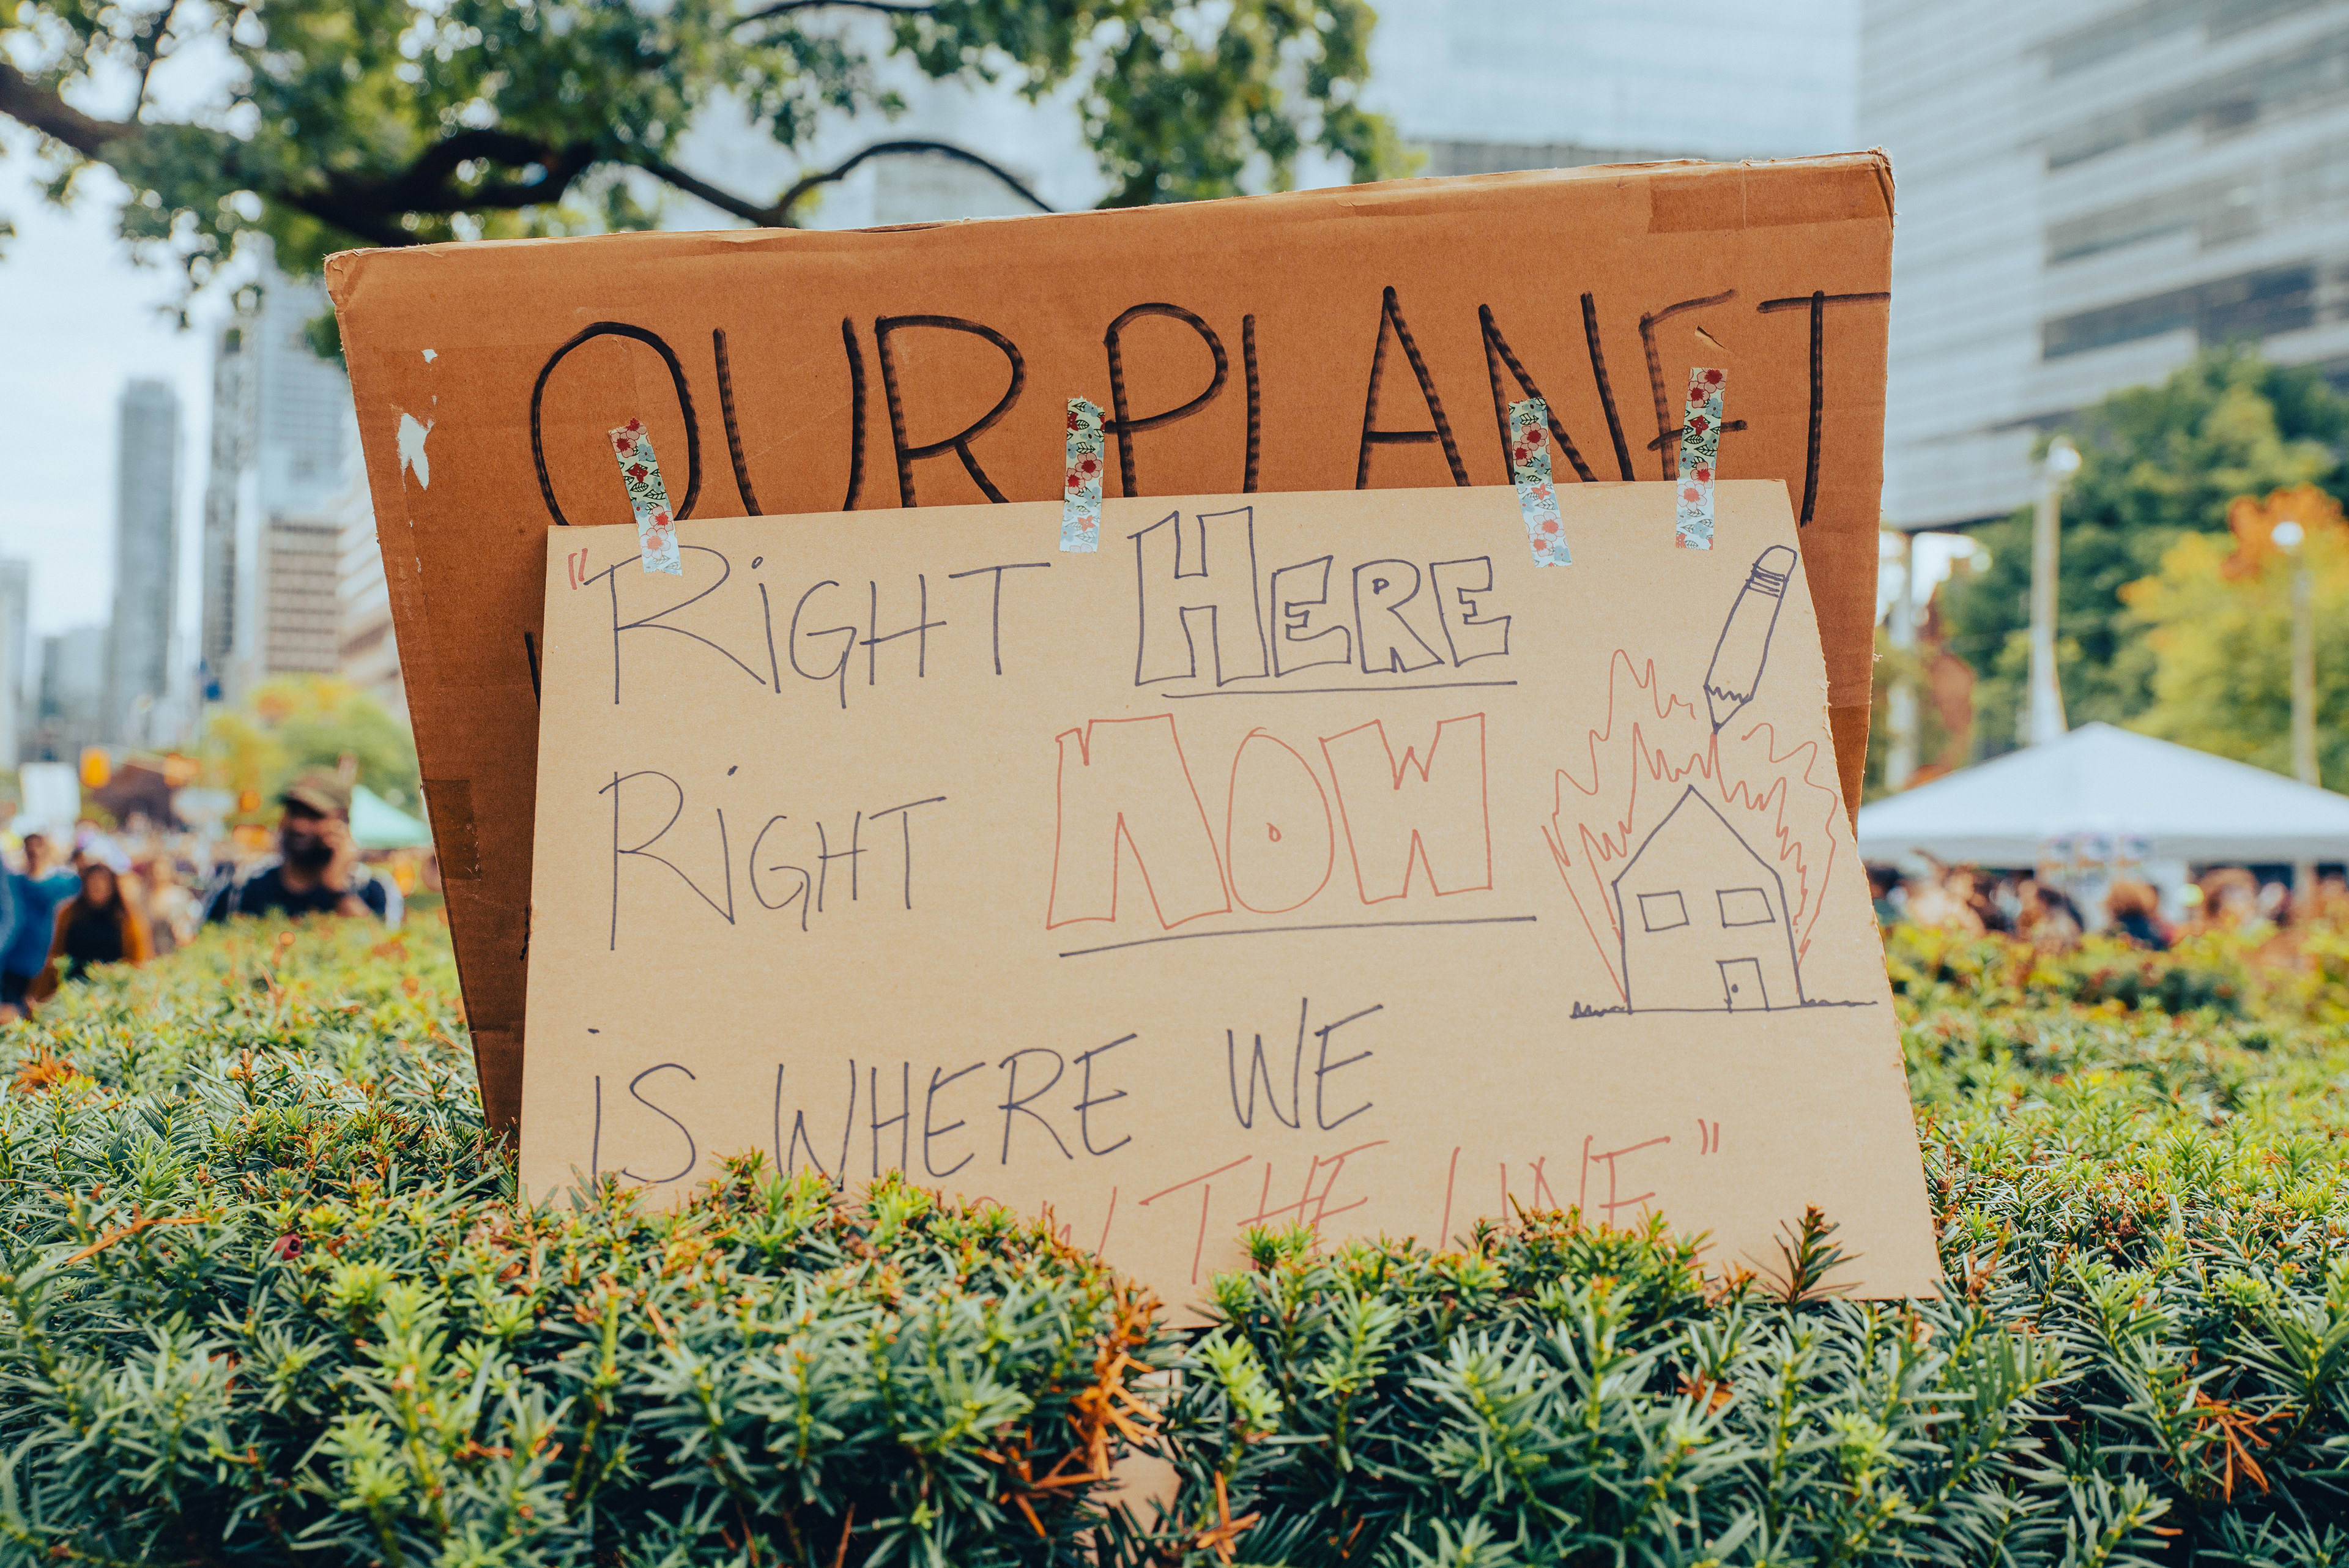 OUR PLANET
"RIGHT HERE
RIGHT NOW
iS WHERE WE
THE LINE"